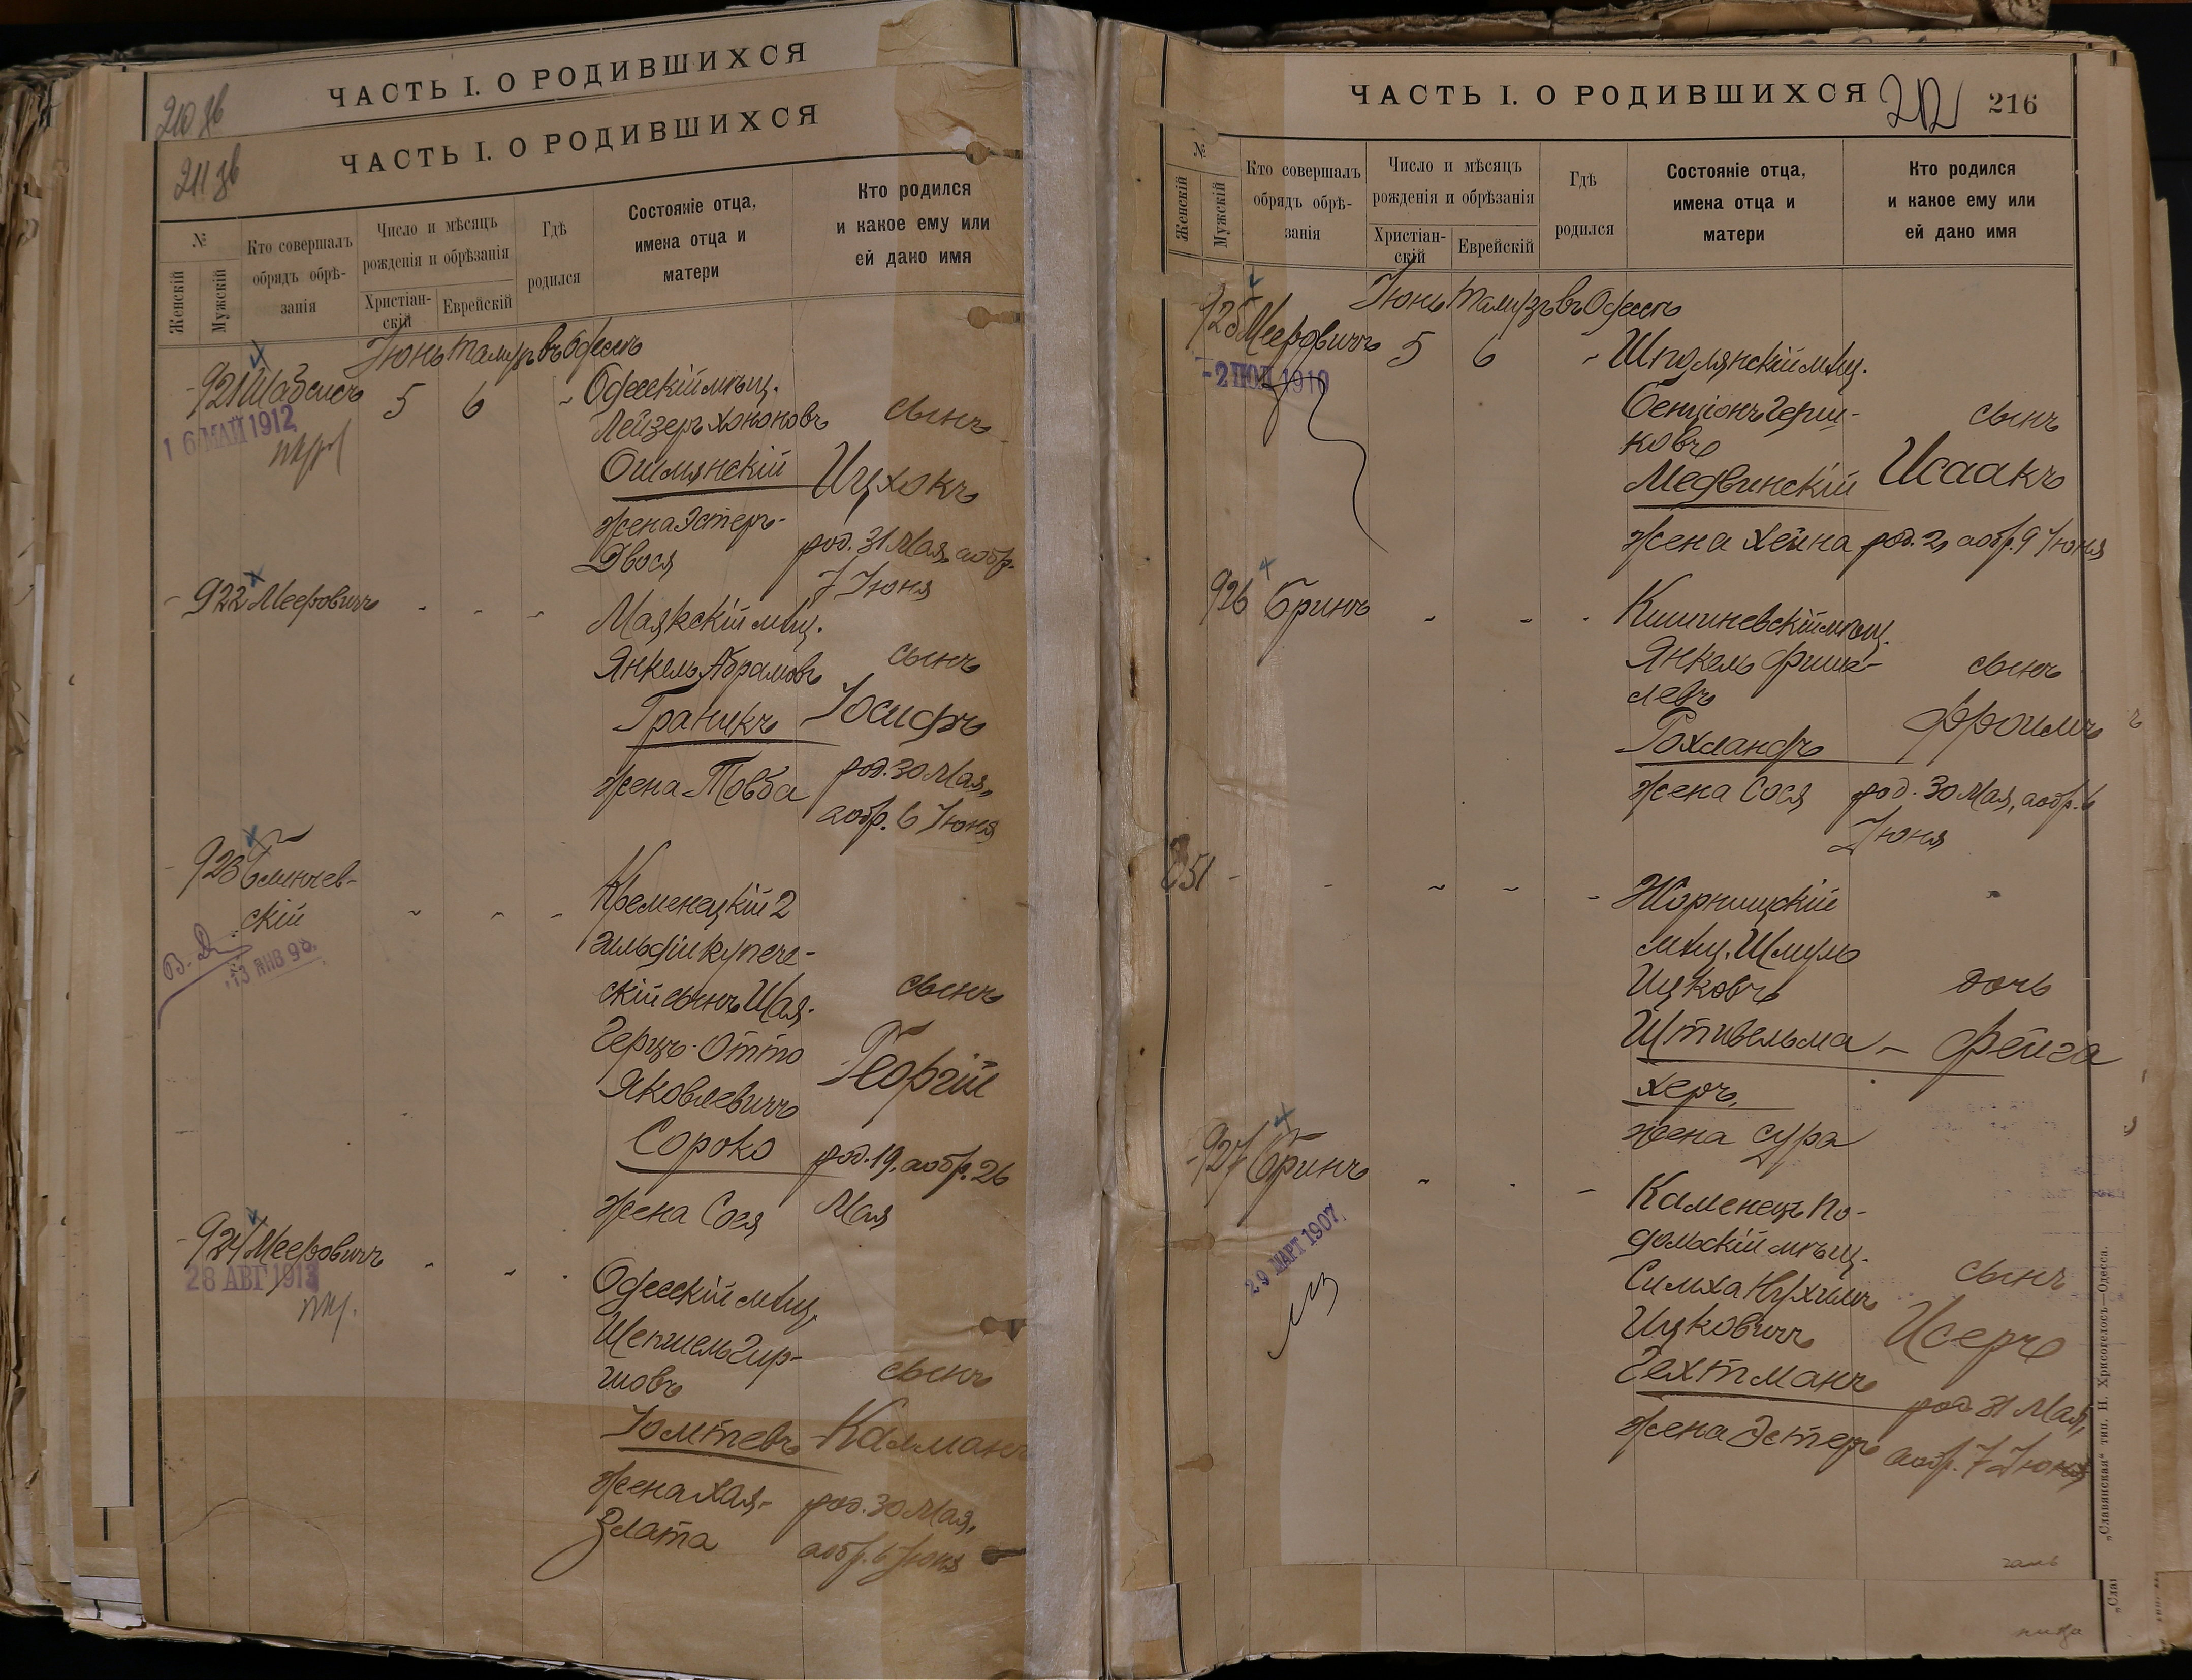 ЧАСТЬ I. О РОДИВШИХСЯ
210 зв
ЧАСТЬ I. О РОДИВШИХСЯ
211 зв
№
Женскій
Мужскій
Кто совершалъ
обрядъ обрѣ-
занія
Число и мѣсяцъ
рожденія и обрѣзанія
Христіан-
скій
Еврейскій
Гдѣ
родился
Состояніе отца,
имена отца и
матери
Кто родился
и какое ему или
ей дано имя
Іюнь Тамузъ въ Одессѣ
921 Шабсисъ 5 6 Одесскій мѣщ.
16 МАЙ 1912
Лейзеръ Хононовъ сынъ
Ошмянскій Ицхокъ
жена Эстеръ-
Двося
род. 31 Мая, а обр.
7 Іюня
922 Мееровичъ - - - Маякскій мѣщ.
Янкель Абрамовъ сынъ
Граникъ Іосифъ
жена Товба род. 30 Мая,
а обр. 6 Іюня
923 Блинчев-
скій
13 ЯНВ 98.
Кременецкій 2
гильдіи купече-
скій сынъ Шая- сынъ
Герцъ-Отто Георгій
Яковлевичъ
Сороко род. 19, а обр. 26
жена Сося Мая
924 Мееровичъ - - - Одесскій мѣщ.
28 АВГ 1913
Шепшель Гир-
шовъ сынъ
Іомтевъ Калманъ
жена Хая- род. 30 Мая,
Злата а обр. 6 Іюня
ЧАСТЬ I. О РОДИВШИХСЯ 212 216
№
Женскій
Мужскій
Кто совершалъ
обрядъ обрѣ-
занія
Число и мѣсяцъ
рожденія и обрѣзанія
Христіан-
скій
Еврейскій
Гдѣ
родился
Состояніе отца,
имена отца и
матери
Кто родился
и какое ему или
ей дано имя
Іюнь Тамузъ въ Одессѣ
925 Мееровичъ 5 6 - Шполянскій мѣщ.
-2 ІЮЛ 1910
Бенціонъ Герш-
ковъ сынъ
Медвинскій Исаакъ
жена Хейна род. 2, а обр. 9 Іюня
926 Бринъ - - - Кишиневскій мѣщ.
Янкель Фише-
левъ сынъ
Рохландъ Фроимъ
жена Сося род. 30 Мая, а обр. 6
Іюня
851 - - - - - Жорнищскій
мѣщ. Шмуль
Ицковъ дочь
Штивельма- Фейга
херъ,
жена Сура
927 Бринъ - - - Каменецъ По-
29 МАРТ 1907
дольскій мѣщ.
Симха Нухимъ сынъ
Ицковичъ Исеръ
Гехтманъ род. 31 Мая,
жена Эстеръ а обр. 7 Іюня
„Славянская“ тип. Н. Хрисогелосъ—Одесса.